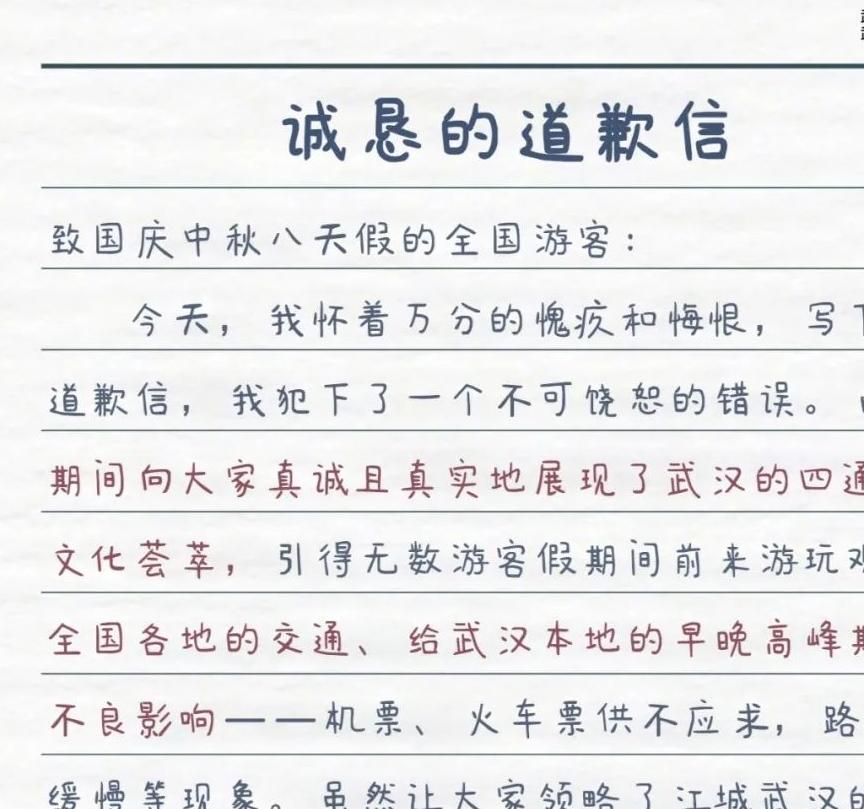 诚恳的道歉信
致国庆中秋八天假的全国游客：
今天，我怀着万分的愧疚和悔恨，写
道歉信，我犯下了一个不可饶恕的错误。
期间向大家真诚且真实地展现了武汉的四
文化荟萃，引得无数游客假期间前来游玩
全国各地的交通、给武汉本地的早晚高峰
不良影响——机票、火车票供不应求，路
缓慢等现象。虽然让大家领略了江城武汉